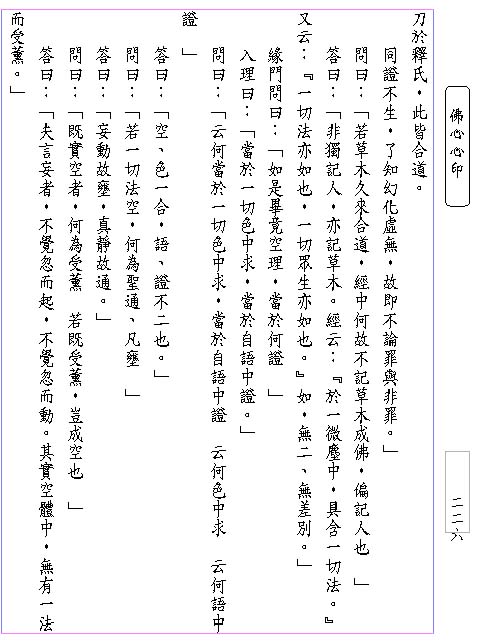 佛心心印
二二六
刀於釋氏，此皆合道。
同證不生，了知幻化虛無，故即不論罪與非罪。」
問曰：「若草木久來合道，經中何故不記草木成佛，偏記人也　」
答曰：「非獨記人，亦記草木。經云：『於一微塵中，具含一切法。』
又云：『一切法亦如也，一切眾生亦如也。』如，無二、無差別。」
緣門問曰：「如是畢竟空理，當於何證　」
入理曰：「當於一切色中求，當於自語中證。」
問曰：「云何當於一切色中求，當於自語中證　云何色中求　云何語中
證　」
答曰：「空、色一合，語、證不二也。」
問曰：「若一切法空，何為聖通、凡壅　」
答曰：「妄動故壅，真靜故通。」
問曰：「既實空者，何為受薰　若既受薰，豈成空也　」
答曰：「夫言妄者，不覺忽而起，不覺忽而動。其實空體中，無有一法
而受薰。」